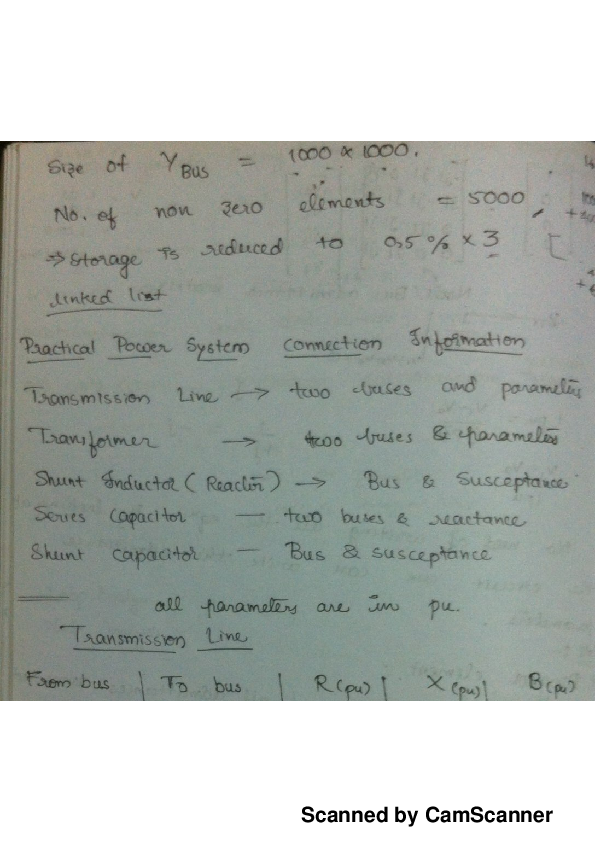 Size of Y_BUS = 1000 x 1000.
No. of non zero elements = 5000,
⇒ Storage is reduced to 0.5% x 3
linked list
Practical Power System connection Information
Transmission Line → two buses and parameters
Transformer → two buses & parameters
Shunt Inductor (Reactor) → Bus & Susceptance
Series capacitor — two buses & reactance
Shunt capacitor — Bus & susceptance
all parameters are in pu.
Transmission Line
From bus | To bus | R(pu) | X(pu) | B(pu)
Scanned by CamScanner